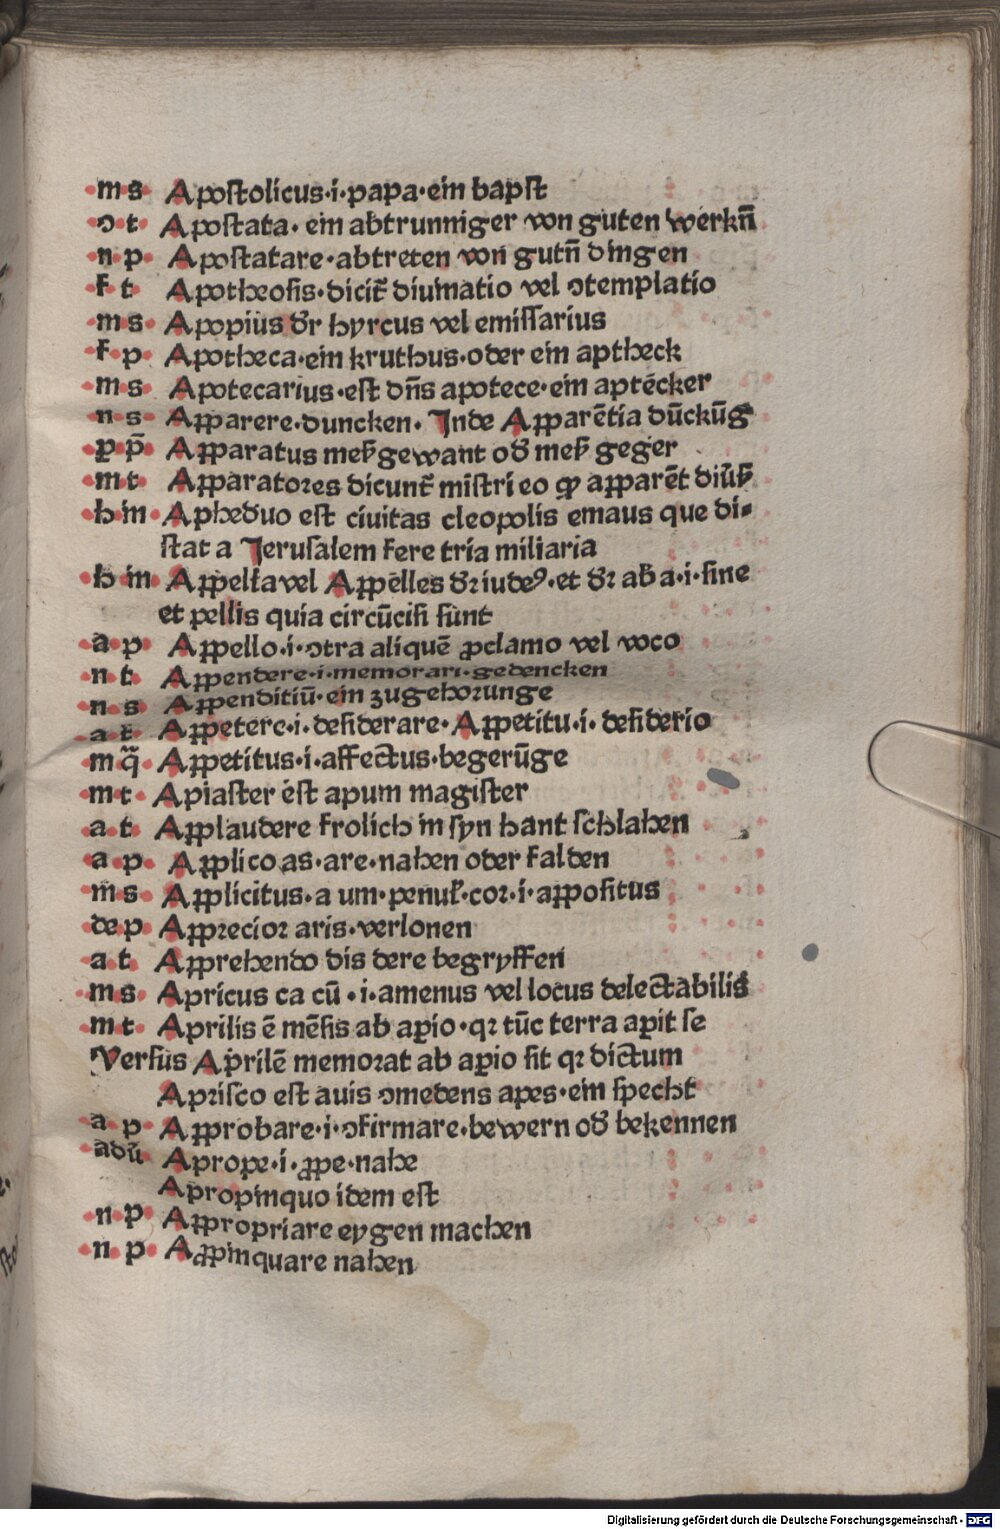 m s Apostolicus·i·papa·ein bapst
ɔ t Apostata· ein abtrunniger von guten werkn̄
n p Apostatare·abtreten von gutn̄ dingen
f t Apotheosis·dicit̄ diuinatio vel ɔtemplatio
m s Apopius dr̄ hyrcus vel emissarius
f p Apotheca·ein kruthus·oder ein aptheck
m s Apotecarius·est dn̄s apotece·ein aptēcker
n s Apparere·duncken· Inde Apparētia dūckūg
p p̄ Apparatus
m t Apparatores dicunt̄ mīstri eo ꝙ apparēt
h m Apheduo est ciuitas cleopolis emaus que di-
stat a Jerusalem fere tria miliaria
h m vel Appelles dr̄ iudeꝰ·et dr̄ ab a·i·sine
et pellis quia circūcisi sunt
a p Appello·i·ɔtra aliquē ꝓclamo vel voco
n t Appendere·i·memorari·gedencken
n s Appenditiū·ein zugehorunge
a t Appetere·i·desiderare·Appetitu·i·desiderio
m q̄ Appetitus·i·affectus·begerūge
m t Apiaster est apum magister
a t Applaudere frolich in syn hant schlahen
a p Applico as·are·nahen oder falden
m s Applicitus·a um·penul̄·cor·i·appositus
de p Apprecior aris·verlonen
a t Apprehendo dis dere begryffen
m s Apricus ca cū·i·amenus vel locus delectabilis
m t Aprilis ē mēsis ab aꝑio·qꝛ tūc terra aꝑit se
Versus Aprilē memorat ab aꝑio sit qꝛ dictum
Aprisco est auis ɔmedens apes·ein specht
a p Approbare·i·ɔfirmare·bewern od̄ bekennen
adū Aprope·i·ꝓpe·nahe
Apropinquo idem est
n p Appropriare eygen machen
n p Aꝓpinquare nahen
Digitalisierung gefördert durch die Deutsche Forschungsgemeinschaft - DFG